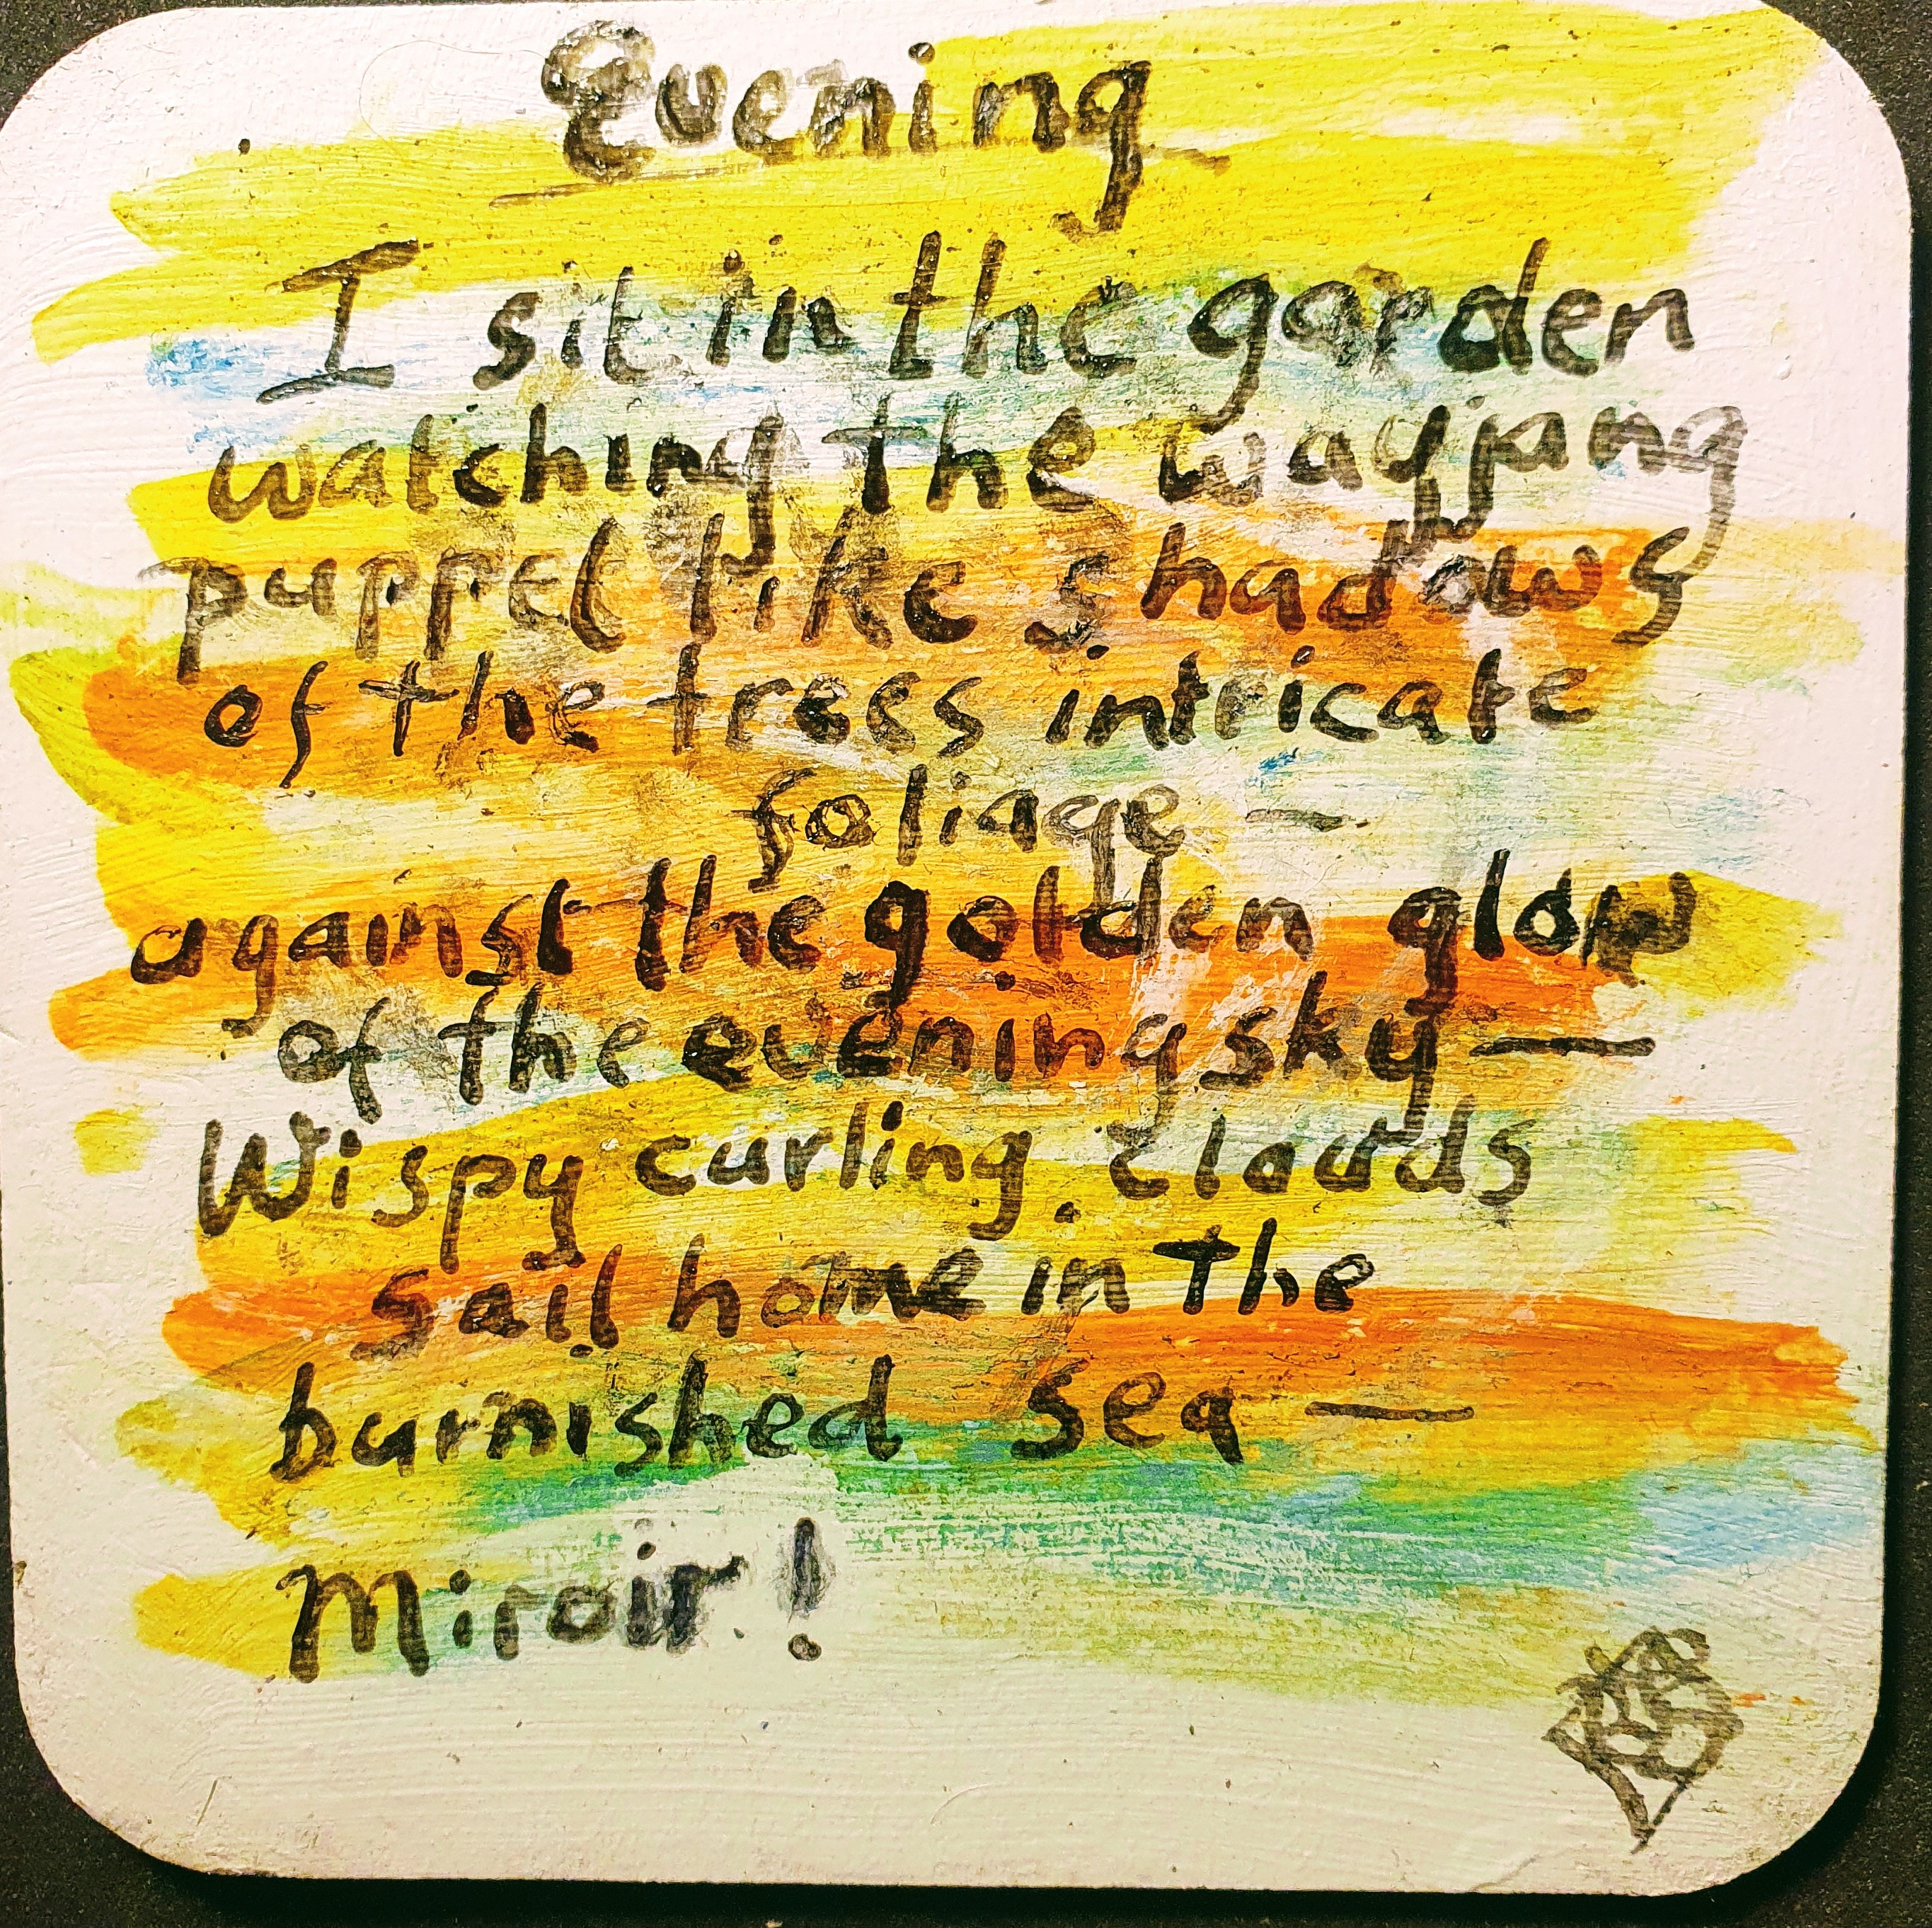 Evening
I sit in the garden
watching the wayjang
puppet like shadows
of the trees intricate
foliage —
against the golden glow
of the evening sky —
Wispy curling clouds
sail home in the
burnished sea —
Miroir!